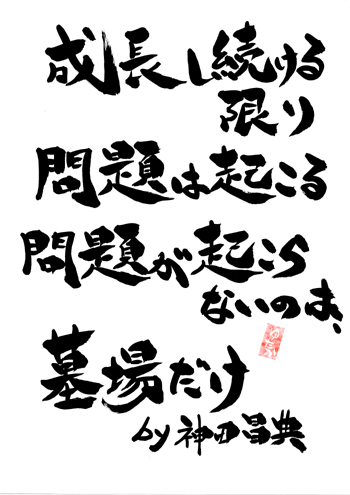 成長し続ける
限り
問題は起こる
問題が起こら
ないのは、
墓場だけ
by 神田昌典